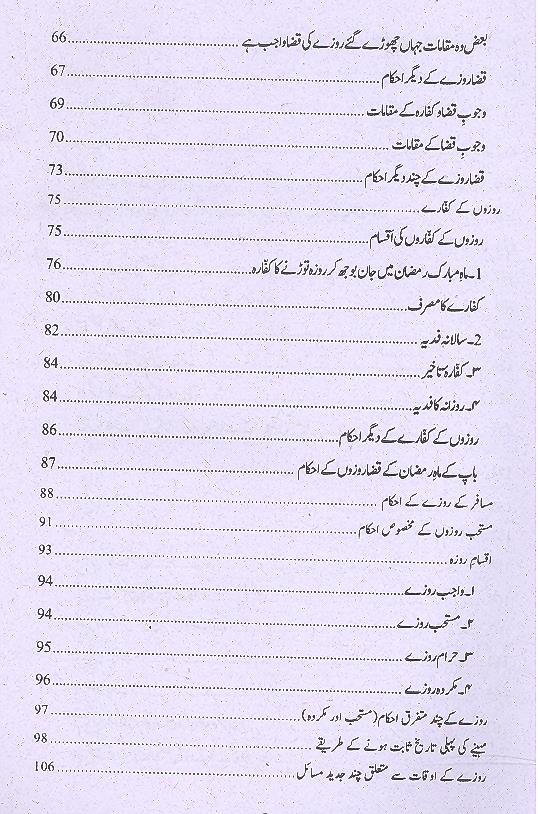 بعض وہ مقامات جہاں چھوڑے گئے روزے کی قضا واجب ہے ........ 66
قضا روزے کے دیگر احکام ........ 67
وجوبِ قضا و کفارہ کے مقامات ........ 69
وجوبِ قضا کے مقامات ........ 70
قضا روزے کے چند دیگر احکام ........ 73
روزوں کے کفّارے ........ 75
روزوں کے کفّاروں کی اقسام ........ 75
1۔ ماہِ مبارک رمضان میں جان بوجھ کر روزہ توڑنے کا کفّارہ ........ 76
کفارے کا مصرف ........ 80
2۔ سالانہ فدیہ ........ 82
۳۔ کفّارہ تاخیر ........ 84
۴۔ روزانہ کا فدیہ ........ 84
روزوں کے کفّارے کے دیگر احکام ........ 86
باپ کے ماہِ رمضان کے قضا روزوں کے احکام ........ 87
مسافر کے روزے کے احکام ........ 88
مستحب روزوں کے مخصوص احکام ........ 91
اقسامِ روزہ ........ 93
۱۔ واجب روزے ........ 94
۲۔ مستحب روزے ........ 94
۳۔ حرام روزے ........ 95
۴۔ مکروہ روزے ........ 96
روزے کے چند متفرق احکام (مستحب اور مکروہ) ........ 97
مہینے کی پہلی تاریخ ثابت ہونے کے طریقے ........ 98
روزے کے اوقات سے متعلق چند جدید مسائل ........ 106